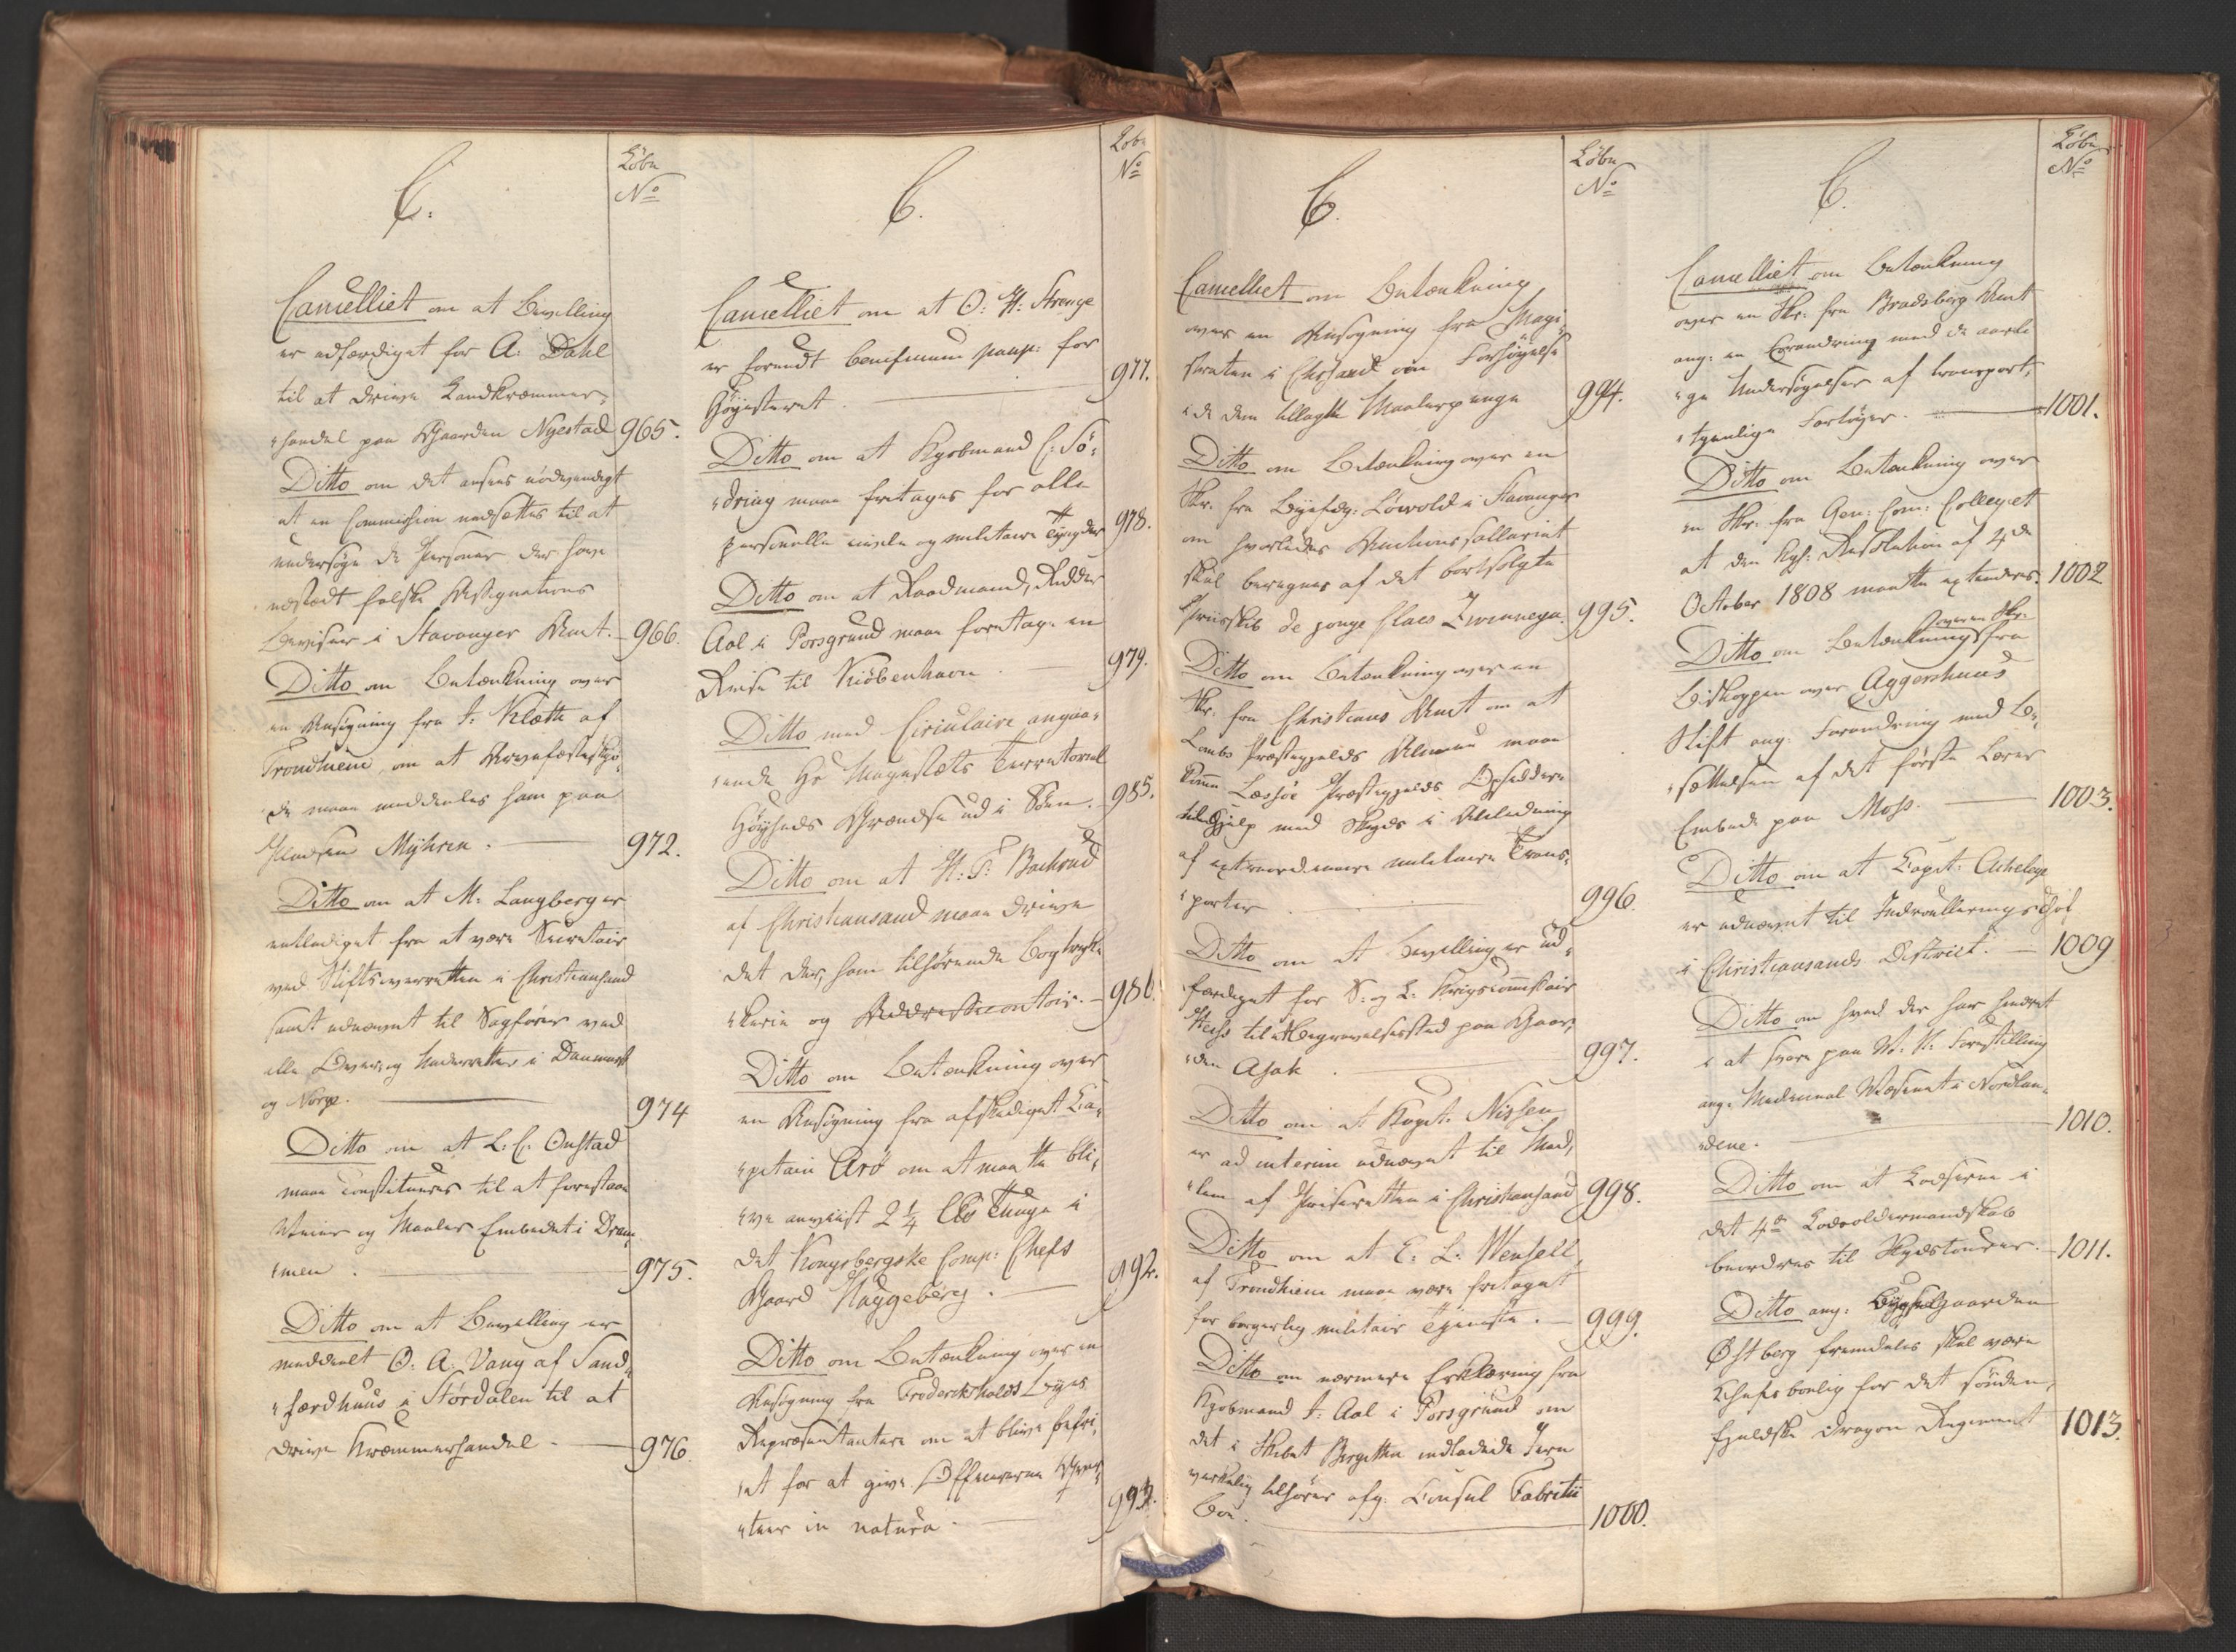 C.
Löbe
No
Cancelliet om at Bevilling
er udfærdiget for A: Dahl
til at drive Landkræmmer,
"handel paa Gaarden Nyestad 965.
Ditto om det ansees nödvendigt
at en Commission nedsættes til at
undersöge de Personer der have
udstædt falske Assignations
Beviser i Stavanger Amt. 966.
Ditto om Betænkning over
en Ansögning fra J: Klætte af
Trondhiem, om at Arvefæsteskjö,
de maae meddeles ham paa
Pladsen Myhren. 972.
Ditto om at M: Langberg er
entlediget fra at være Secretair
ved Stiftsoverretten i Christiansand
samt udnævnt til Sagförer ved
alle Over og Underretter i Danmark
og Norge. 974
Ditto om at L. C. Onstad
maae constitueres til at forestaae
Veier og Maaler Embedet i Dram,
"men. 975.
Ditto om at Bevilling er
meddeelt O: A: Vang af Sand,
"færdhuus i Stördalen til at
drive Kræmmerhandel. 976.
C.
Löbe
No
Cancelliet om at O: H: Strenge
er forundt beneficium paup: for
Höiesteret. 977.
Ditto om at Kjöbmand C: Sö,
"dring maae fritages for alle
personelle civile og militaire Tyngder 978.
Ditto om at Raadmand, Ridder
Aal i Porsgrund maae foretage en
Reise til Kiöbenhavn. 979.
Ditto med Circulaire angaa,
"ende Hs Majestæts Territorial
Höiheds Grændse ud i Söen. 985.
Ditto om at H: T: Bachrud
af Christiansand maae drive
det der, ham tilhörende Bogtryk,
"kerie og Addressecontoir. 986.
Ditto om Betænkning over
en Ansögning fra afskediget Ca,
"pitain Arö om at maatte bli,
"ve anviist 2 1/4 Tunge i
det Kongsbergske Comp: Chefs
Gaard Haggeberg. 992.
Ditto om Betænkning over en
Ansögning fra Frederikshalds Byes
Repræsentantere om at blive befri,
"et for at give Officererne Qvar,
"teer in natura. 993.
C.
Löbe
No
Cancelliet om Betænkning
over en Ansögning fra Magi,
straten i Chrsand om Forhöielse
i de dem tillagte Maalerpenge 994.
Ditto om Betænkning over en
Skr. fra Byefog: Löwold i Stavanger
om hvorledes Auctionssallariet
skal beregnes af det bortsolgte
Priisskib de jonge Claes Zwinnega. 995.
Ditto om Betænkning over en
Skr. fra Christians Amt om at
Lombs Præstegjelds Almue maae
komme Lessöe Præstegjelds Opsiddere
til Hjelp med Skyds i Anledning
af extraordinaire militaire Trans,
"porter. 996.
Ditto om at Bevilling er ud,
færdiget for S: og L: Krigscommissair
Hess til Begravelsessted paa Gaar,
"den Asak. 997.
Ditto om at Kapt. Nissen
er ad interim udnævnt til Med,
"lem af Priseretten i Christiansand 998.
Ditto om at E: L: Wensell
af Trondhiem maae være fritaget
for borgerlig militair Tjeneste. 999.
Ditto om nærmere Erklæring fra
Kjöbmand J: Aal i Porsgrund om
det i Skibet Bergitha indladede Jern
verkelig tilhörer afg. Consul Fabritii
Boe. 1000.
C.
Löbe
No
Cancelliet om Betænkning
over en Skr: fra Bradsberg Amt
ang: en Forandring med de aarli
"ge Undersögelser af transport,
"tjenlige Fartöyer. 1001.
Ditto om Betænkning over
en Skr: fra Gen: Com: Collegiet
at den Kgl: Resolution af 4de
October 1808 maatte extenderes. 1002
over en Skr.
Ditto om Betænkning fra
Biskoppen over Aggershuus
Stift ang: Forandring med Be,
"sættelsen af det förste Lærer
Embede paa Moss. 1003.
Ditto om at Capt: Acheleye
er udnævnt til Indroulleringschef
i Christiansands District. 1009
Ditto om hvad der har hindret
i at svare paa Forestilling
ang: Medicinal Væsenet i Nordlan,
"dene. 1010.
Ditto om at Lodserne i
det 4de Lodsoldermandskab
beordres til Skydstouer. 1011.
Ditto ang: Bygselgaarden
Østberg fremdeles skal være
Chefsbolig for det sönden,
fjeldske Dragon Regiment 1013.